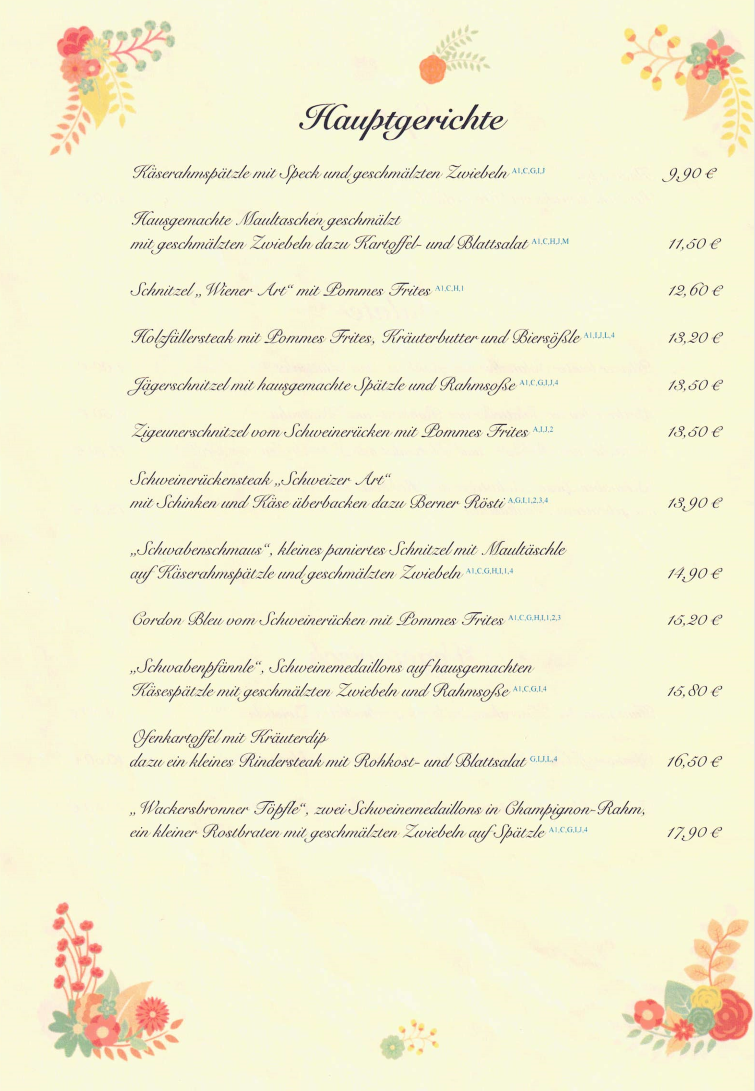 Hauptgerichte
Käserahmspätzle mit Speck und geschmälzten Zwiebeln A1,C,G,I,J 9,90 €
Hausgemachte Maultaschen geschmälzt
mit geschmälzten Zwiebeln dazu Kartoffel- und Blattsalat A1,C,H,J,M 11,50 €
Schnitzel „Wiener Art“ mit Pommes Frites A1,C,H,1 12,60 €
Holzfällersteak mit Pommes Frites, Kräuterbutter und Biersößle A1,I,J,L,4 13,20 €
Jägerschnitzel mit hausgemachte Spätzle und Rahmsoße A1,C,G,I,J,4 13,50 €
Zigeunerschnitzel vom Schweinerücken mit Pommes Frites A,I,J,2 13,50 €
Schweinerückensteak „Schweizer Art“
mit Schinken und Käse überbacken dazu Berner Rösti A,G,I,1,2,3,4 13,90 €
„Schwabenschmaus“, kleines paniertes Schnitzel mit Maultäschle
auf Käserahmspätzle und geschmälzten Zwiebeln A1,C,G,H,I,1,4 14,90 €
Cordon Bleu vom Schweinerücken mit Pommes Frites A1,C,G,H,I,1,2,3 15,20 €
„Schwabenpfännle“, Schweinemedaillons auf hausgemachten
Käsespätzle mit geschmälzten Zwiebeln und Rahmsoße A1,C,G,I,4 15,80 €
Ofenkartoffel mit Kräuterdip
dazu ein kleines Rindersteak mit Rohkost- und Blattsalat G,I,J,L,4 16,50 €
„Wackersbronner Töpfle“, zwei Schweinemedaillons in Champignon-Rahm,
ein kleiner Rostbraten mit geschmälzten Zwiebeln auf Spätzle A1,C,G,I,J,4 17,90 €